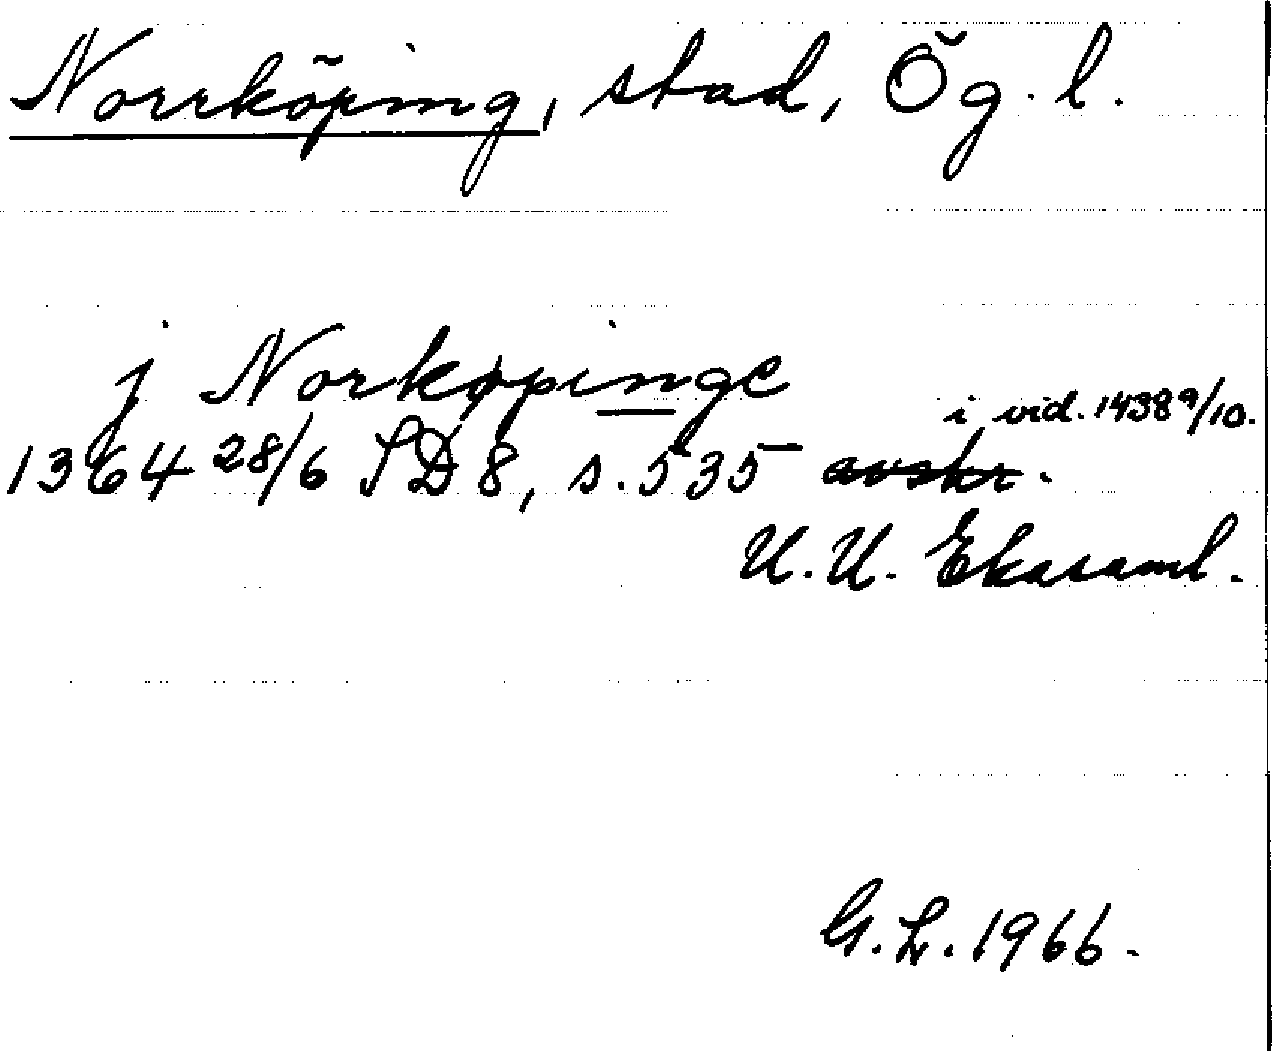 Norrköping, stad, Ög. l.
j Norkøpinge
i vid. 1438 9/10.
1364 28/6 SD 8, s. 535 avskr.
U. U. Ekasaml.
G. L. 1966.